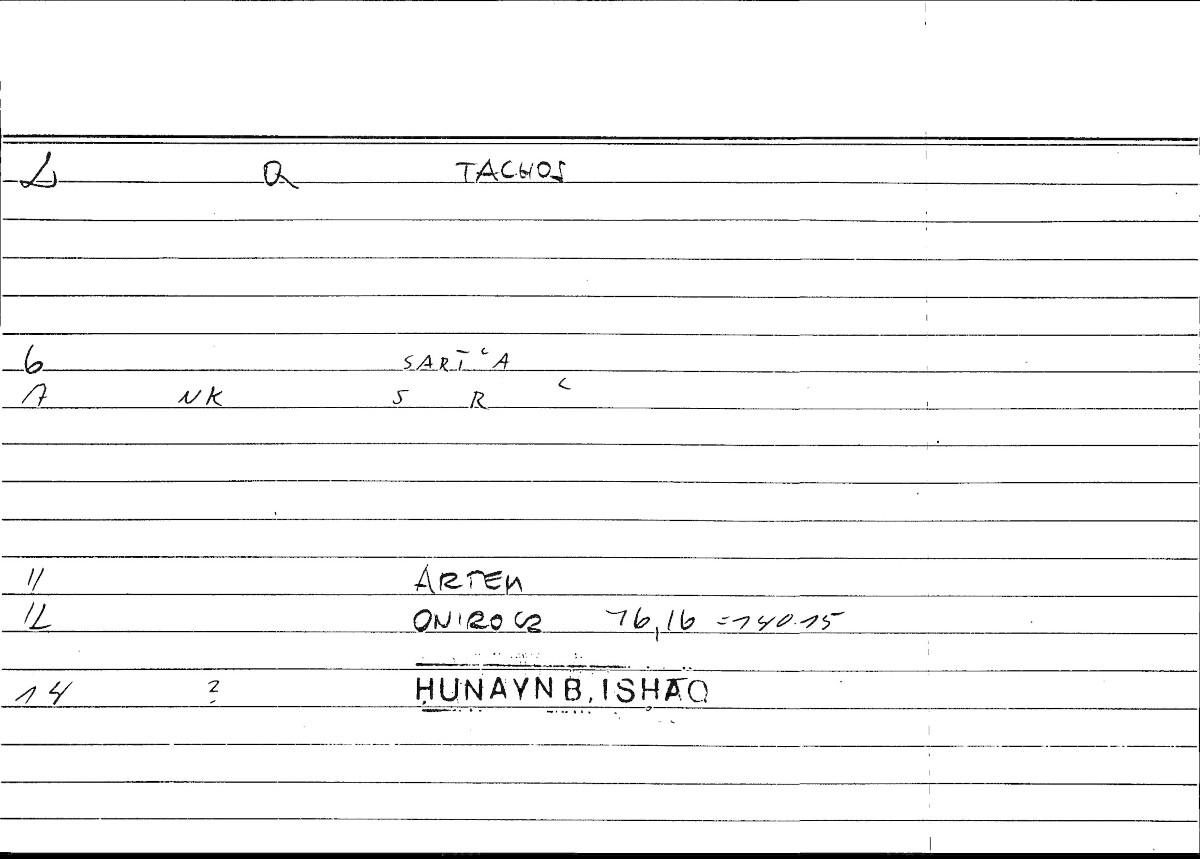 Q TACHOS
6 SARĪʿA
7 NK S R ʿ
11 ARTEM
12 ONIROCR 16,16 = 140.15
14 ? ḤUNAYN B. ISḤAQ